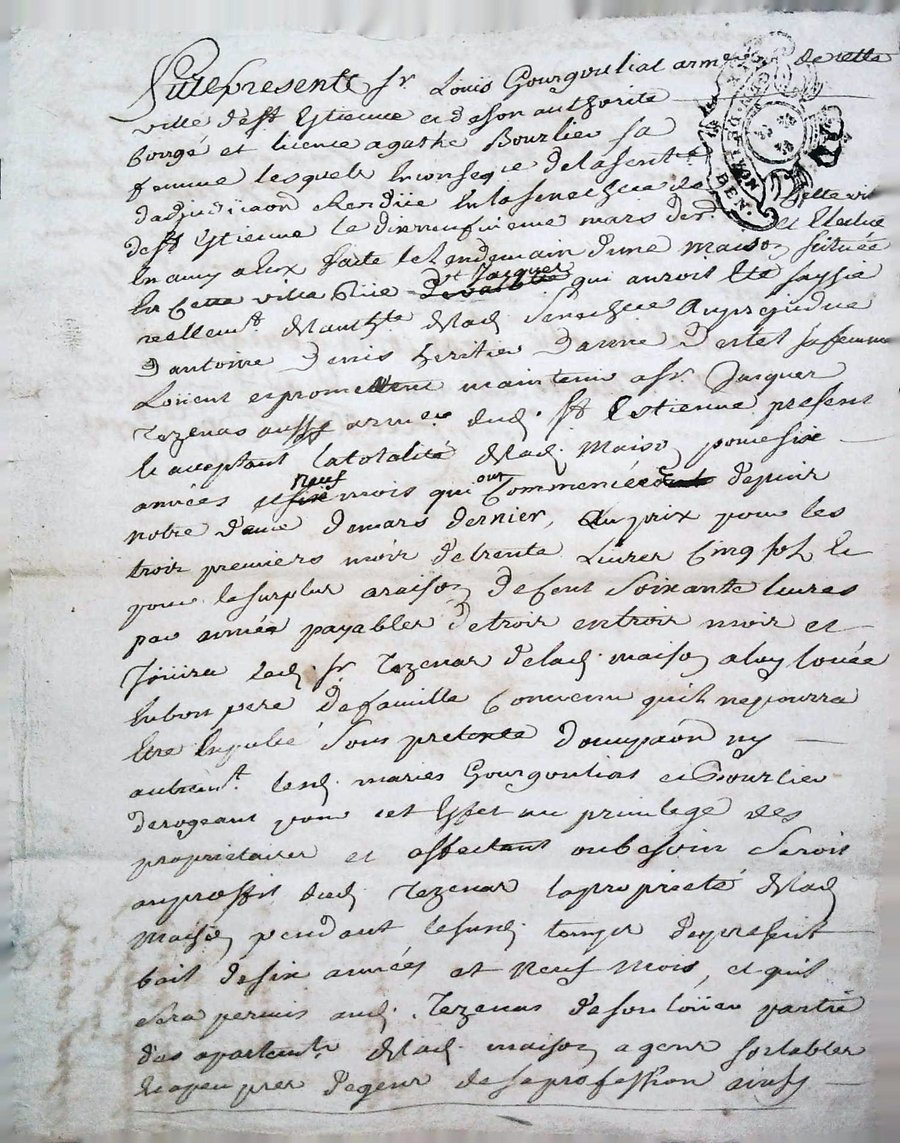 Fut présente sr. Louis Gourgouliat arme de cette
ville de st Etienne et de son authorite
Congé et licence agathe Bourlier sa
femme lesquels En conseqce de la sentce
dadjudicaon Rendüe En la senechcée de cette ville
de st Etienne le dixneufvieme mars der. et Election
En amy a Eux faite le Lendemain d'une maison scituée
En cette ville Rüe et Jacques qui auroit Eté saysie
reellemt. dauthte. de lad. senechcée au prejudice
d'antoine Denis heritier d'anne Destel sa femme
Loüent et promettent maintenir a sr. Jacques
Tezenas aussy armeur dud. st Estienne present
et acceptant la totalité de lad. Maison pour six
années neuf mois qui ont Commencé depuis
notre dame de mars dernier, au prix pour les
trois premiers mois de trente Livres Cinq sols et
pour le surplus a raison de Cent soixante livres
par année payables de trois en trois mois et
Joüira led. sr. Tezenas de lad. maison a luy louée
En bon pere de famille Convenu qu'il ne pourra
Etre Expulsé sous pretexte d'occupaon ny
autremt. lesd. mariés Gourgouliat et Bourlier
derogeant pour cet Effet au privilege des
proprietaires et affectant au besoin seroit
au proffit dud. Tezenas la propriete de lad.
Maison pendant le susd. temps du present
bail de six années et neuf mois, et qu'il
sera permis aud. Tezenas de soulouer partie
des apartemts. de lad. maison a gens sortables
Et a peu pres d'egeur de sa profession ainsy
DE LYON
DEN.